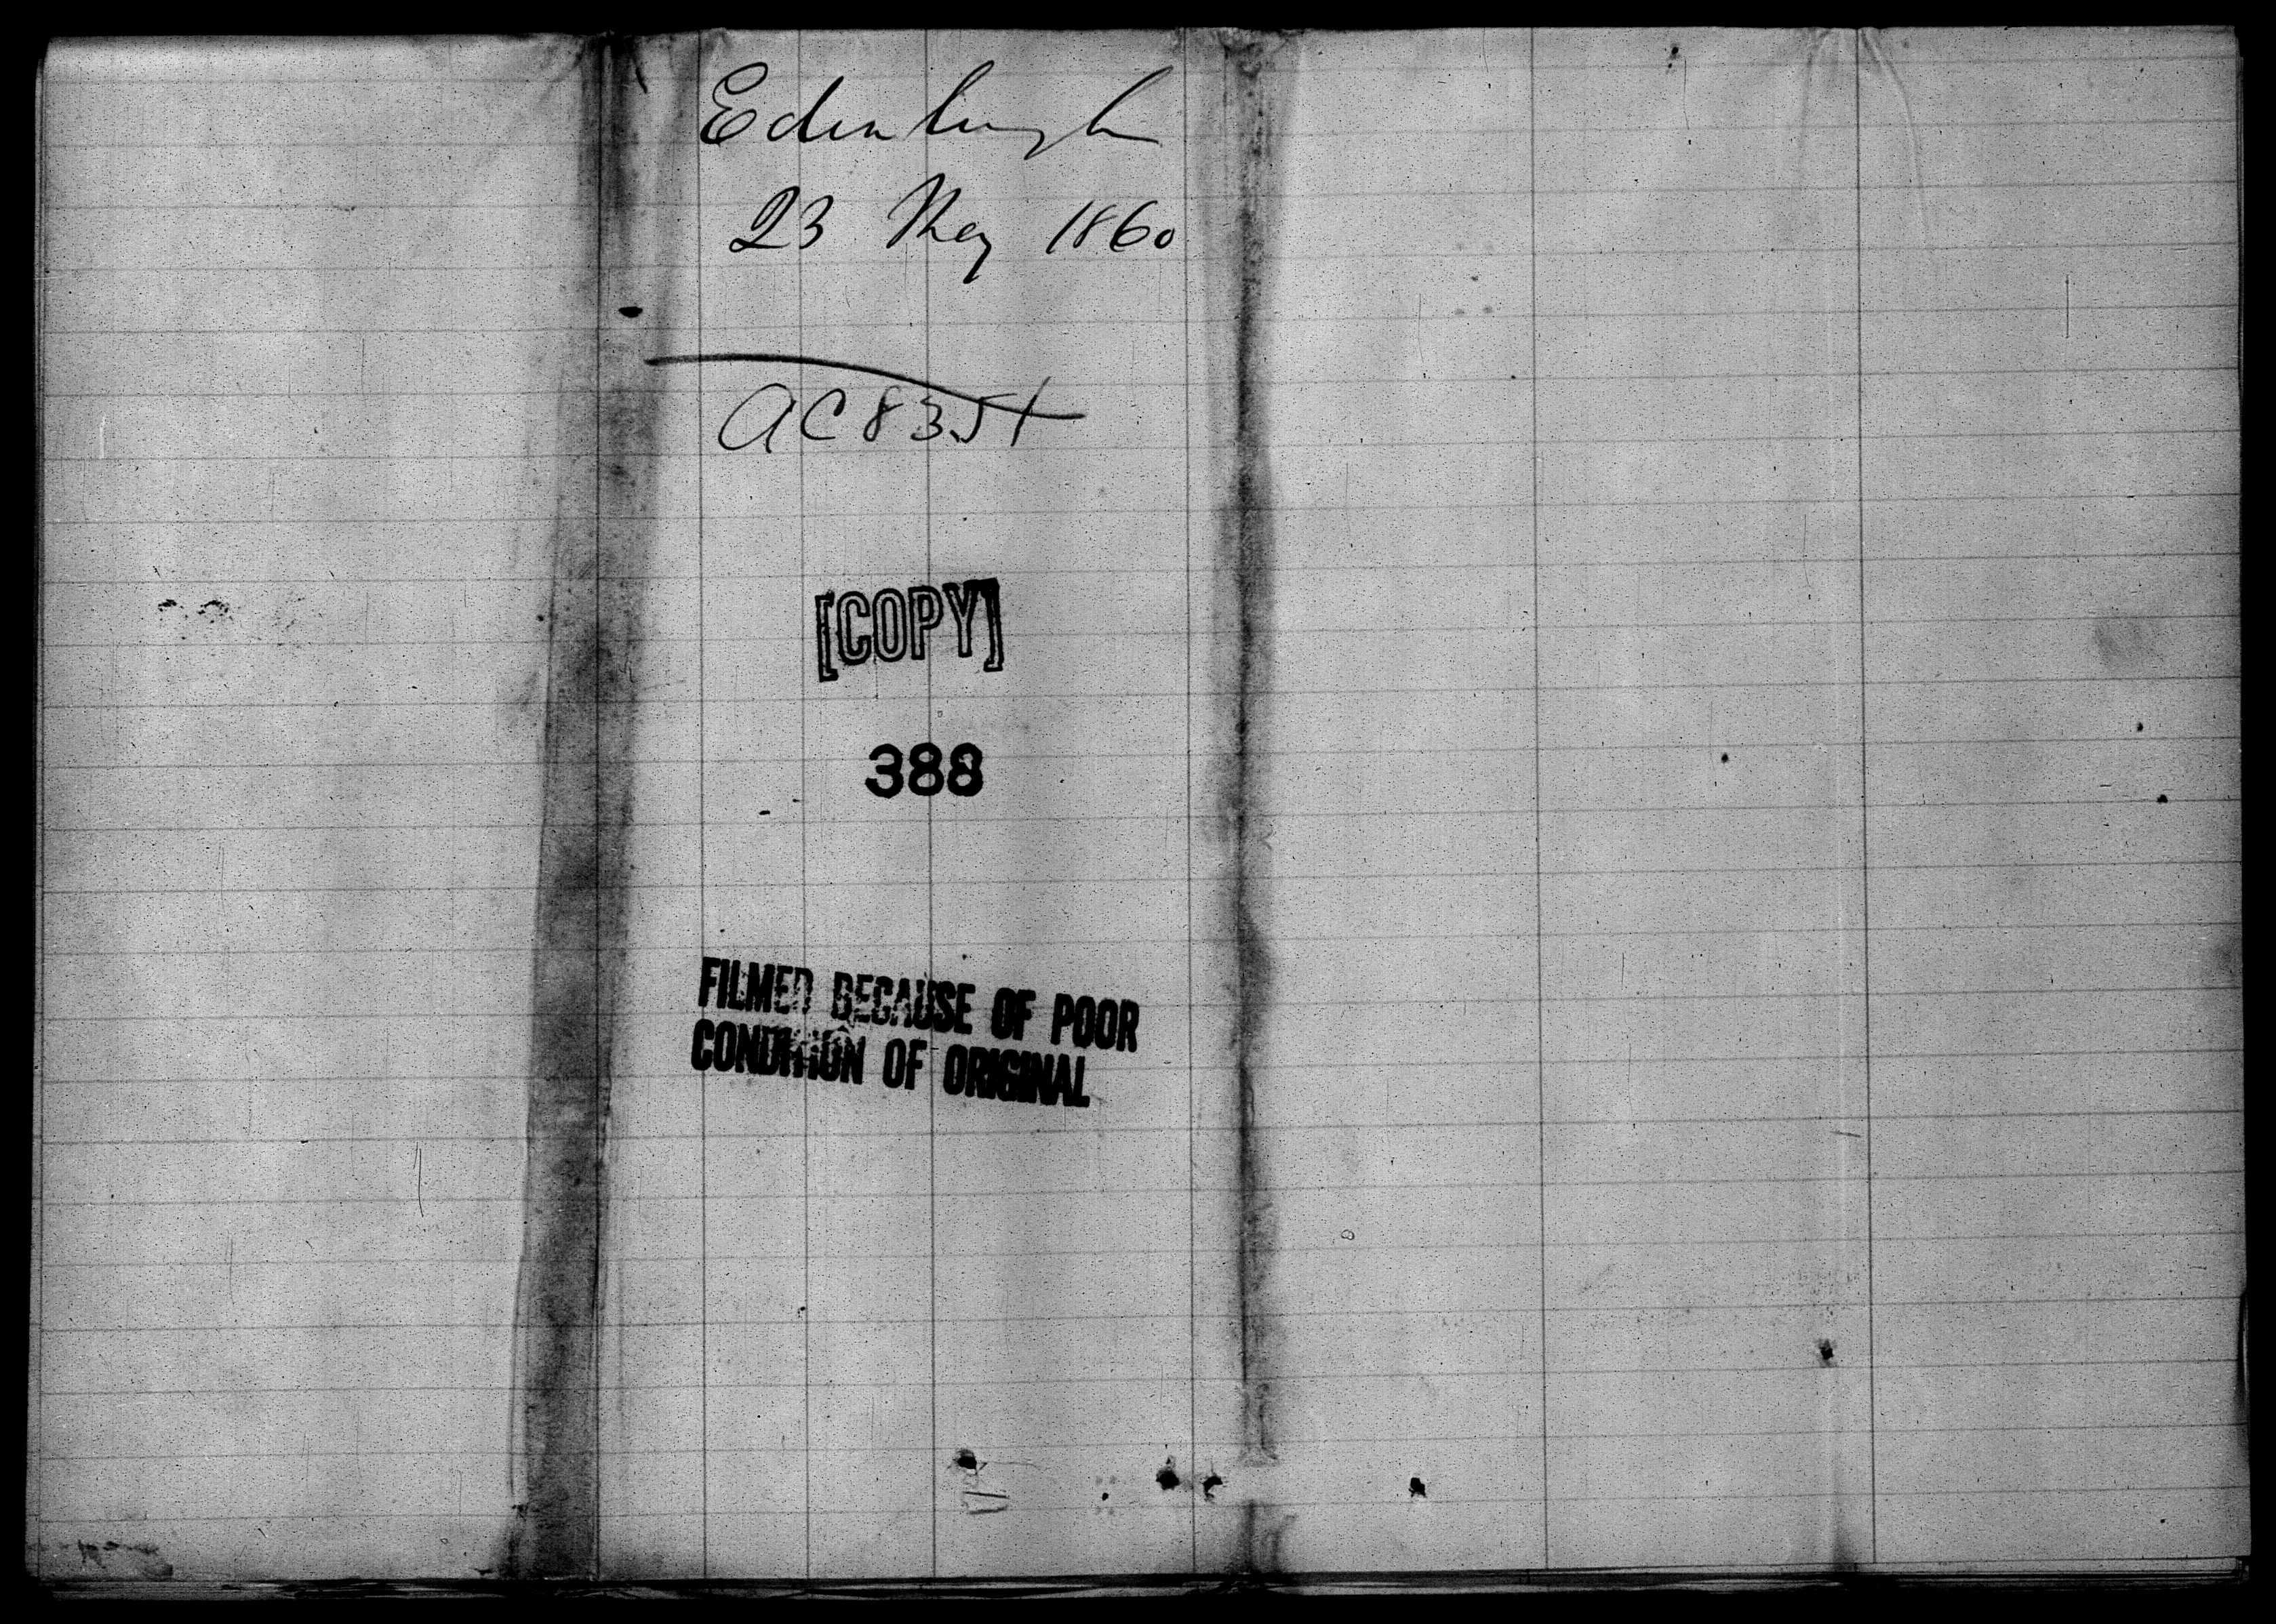 Edinburgh
23 May 1860
AC 835+
[COPY]
388
FILMED BECAUSE OF POOR
CONDITION OF ORIGINAL